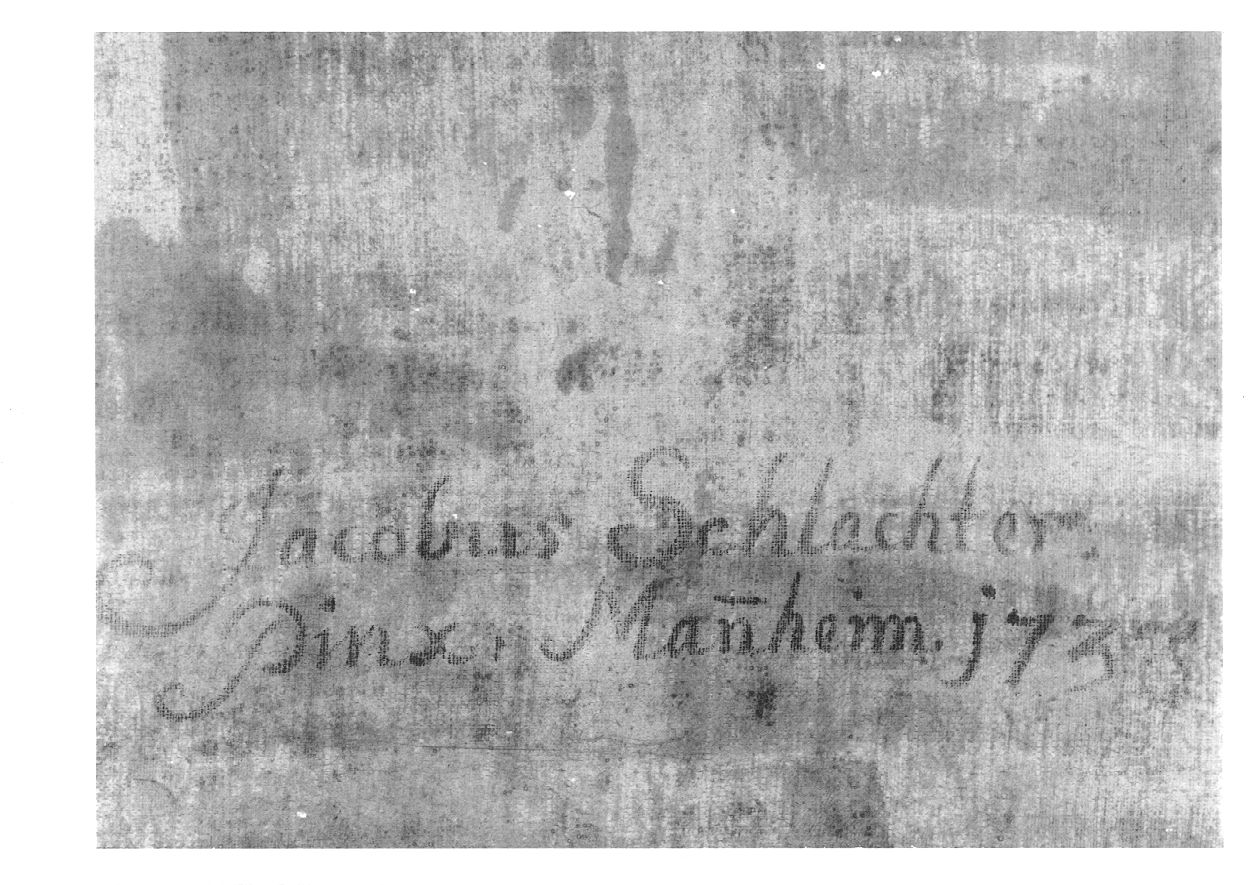 Jacobus Schlachter
Pinx, Man̄heim. j737